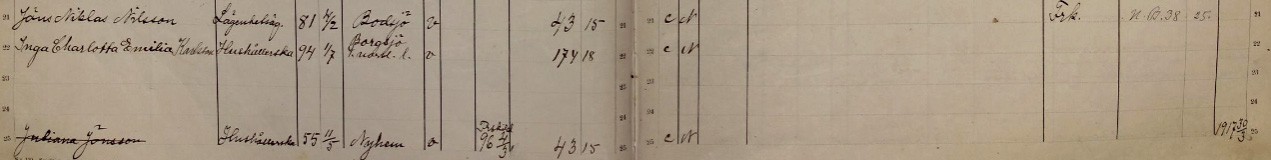 21 Jöns Niklas Nilsson Lägenhetsäg. 81 Bodsjö v 43 15 21 21 c N Frk. N.B.38 25 21
22 Inga Charlotta Emilia Karlsson Hushållerska 94 1/7 Borgsjö v. norrl. l. v 174 18 22 22 c N 22
23 23 23 23
24 24 24
25 Juliana Jönsson Hushållerska 55 11/5 Nyhem v 96 43 15 25 25 c N 1917 30/3 25